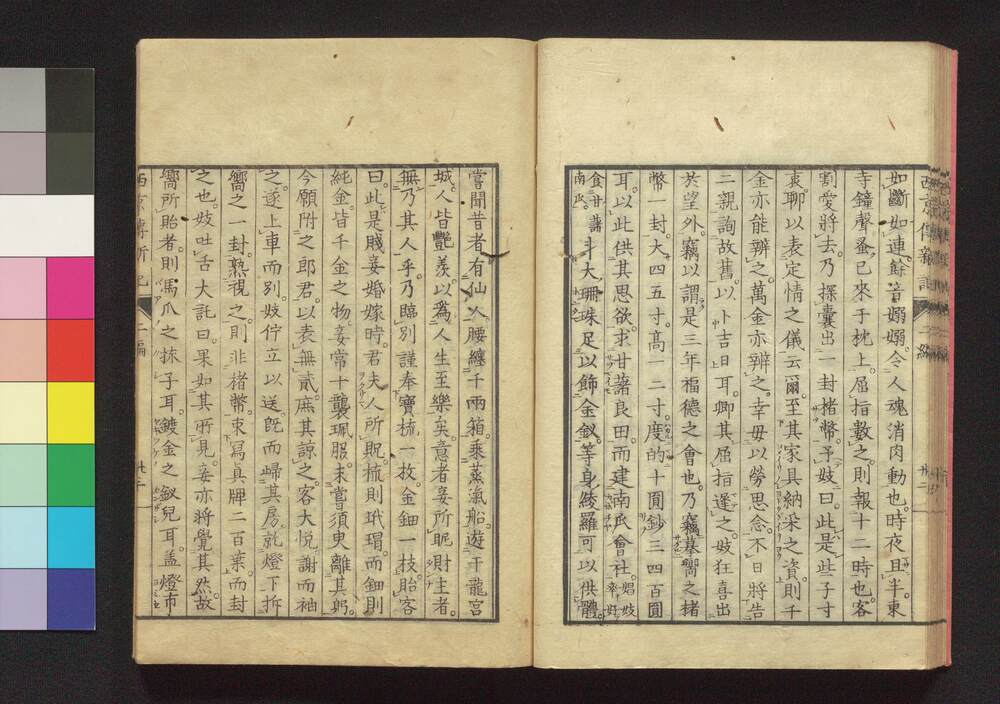 如斷如連。餘音嫋嫋。令人魂消肉動也。時夜且半。東
寺鐘聲蚤已來于枕上。屈指數之則報十二時也。客
割愛將去。乃探囊出一封楮幣。予妓曰。此是些子寸
衷。聊以表定情之儀云爾。至其家具納采之資。則千
金亦能辨之。萬金亦辨之。幸毋以勞思念。不日將告
二親詢故舊。以卜吉日耳。卿其屈指遲之。妓狂喜出
於望外。竊以謂是三年福德之會也。乃竊摹嚮之楮
幣一封。大四五寸。高一二寸。度的十圓鈔三四百圓
耳。以此供其思欲。求甘藷良田。而建南瓜會社。娼妓率好
食甘藷南瓜。斗大珊珠足以飾金釵。等身綾羅可以供體。
嘗聞昔者有仙人。腰纏千兩箱。乘蒸瀛船。遊于龍宮
城。人皆艷羨。以爲人生至樂矣。意者妾所眤財主者。
無乃其人乎。乃臨別謹奉寶梳一枚。金鈿一枝。貽客
曰。此是賤妾婚嫁時。君夫人所貺。梳則玳瑁。而鈿則
純金。皆千金之物。妾常十襲珮服。未嘗須臾離其躬。
今願附之郎君。以表無貳。庶其諒之。客大悅。謝而袖
之。遂上車而別。妓佇立以送。旣而歸其房。就燈下拆
嚮之一封。熟視之。則非楮幣。束寫眞牌二百葉。而封
之也。妓吐舌大詫曰。果如其所見。妾亦將覺其然。故
嚮所貽者。則馬爪之抹子耳。鍍金之釵兒耳。盖燈市